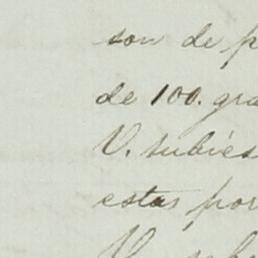 son de p
de 100. gra
V. subies
estas por
V.